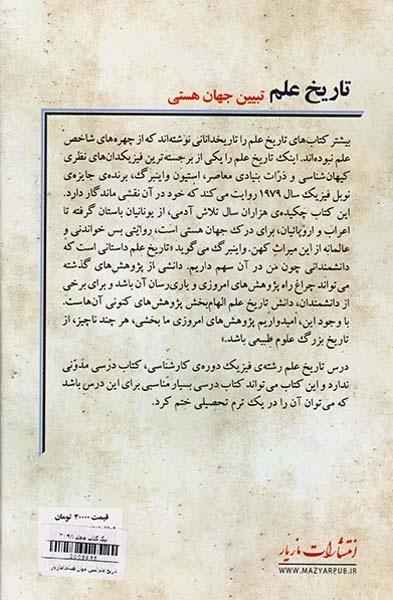 تاریخ علم تبیین جهان هستی
بیشتر کتاب‌های تاریخ علم را تاریخدانانی نوشته‌اند که از چهره‌های شاخص
علم نبوده‌اند. اینک تاریخ علم را یکی از برجسته‌ترین فیزیکدان‌های نظری
کیهان‌شناسی و ذرّات بنیادی معاصر، استیون واینبرگ، برنده‌ی جایزه‌ی
نوبل فیزیک سال ۱۹۷۹ روایت می‌کند که خود در آن نقشی ماندگار دارد.
این کتاب چکیده‌ی هزاران سال تلاش آدمی، از یونانیان باستان گرفته تا
اعراب و اروپائیان، برای درک جهان هستی است، روایتی بس خواندنی و
عالمانه از این میراث کهن. واینبرگ می‌گوید «تاریخ علم داستانی است که
دانشمندانی چون من در آن سهم داریم. دانشی از پژوهش‌های گذشته
می‌تواند چراغ راه پژوهش‌های امروزی و یاری‌رسان آن باشد و برای برخی
از دانشمندان، دانش تاریخ علم الهام‌بخش پژوهش‌های کنونی آن‌هاست.
با وجود این، امیدواریم پژوهش‌های امروزی ما بخشی، هر چند ناچیز، از
تاریخ بزرگ علوم طبیعی باشد.»
درس تاریخ علم رشته‌ی فیزیک دوره‌ی کارشناسی، کتاب درسی مدوّنی
ندارد و این کتاب می‌تواند کتاب درسی بسیار مناسبی برای این درس باشد
که می‌توان آن را در یک ترم تحصیلی ختم کرد.
قیمت ۳۰۰۰۰ تومان
انتشارات مازیار
WWW.MAZYARPUB.IR